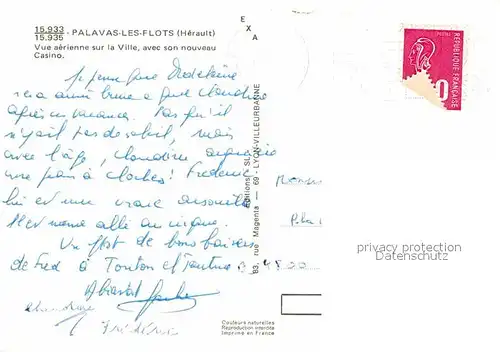 15.933
15.935 - PALAVAS-LES-FLOTS (Hérault)
Vue aérienne sur la Ville, avec son nouveau
Casino.
E X A
Je pense que Madeleine
sera aussi brune que Claudine
après ses vacances. Pas qu'il
n'y ait pas de soleil, mais
avec l'âge, Claudine
une peau à cloches! Frédéric
lui est une vraie
Il est même allé au cirque.
Un flot de bons baisers
de Fred à Tonton et Tantine
A bientôt
Claudine
Frédéric
Editions SL
83, rue Magenta — 69 - LYON-VILLEURBANNE
POSTES
REPUBLIQUE FRANÇAISE
0
34500
privacy protection
Datenschutz
Couleurs naturelles
Reproduction interdite
Imprimé en France